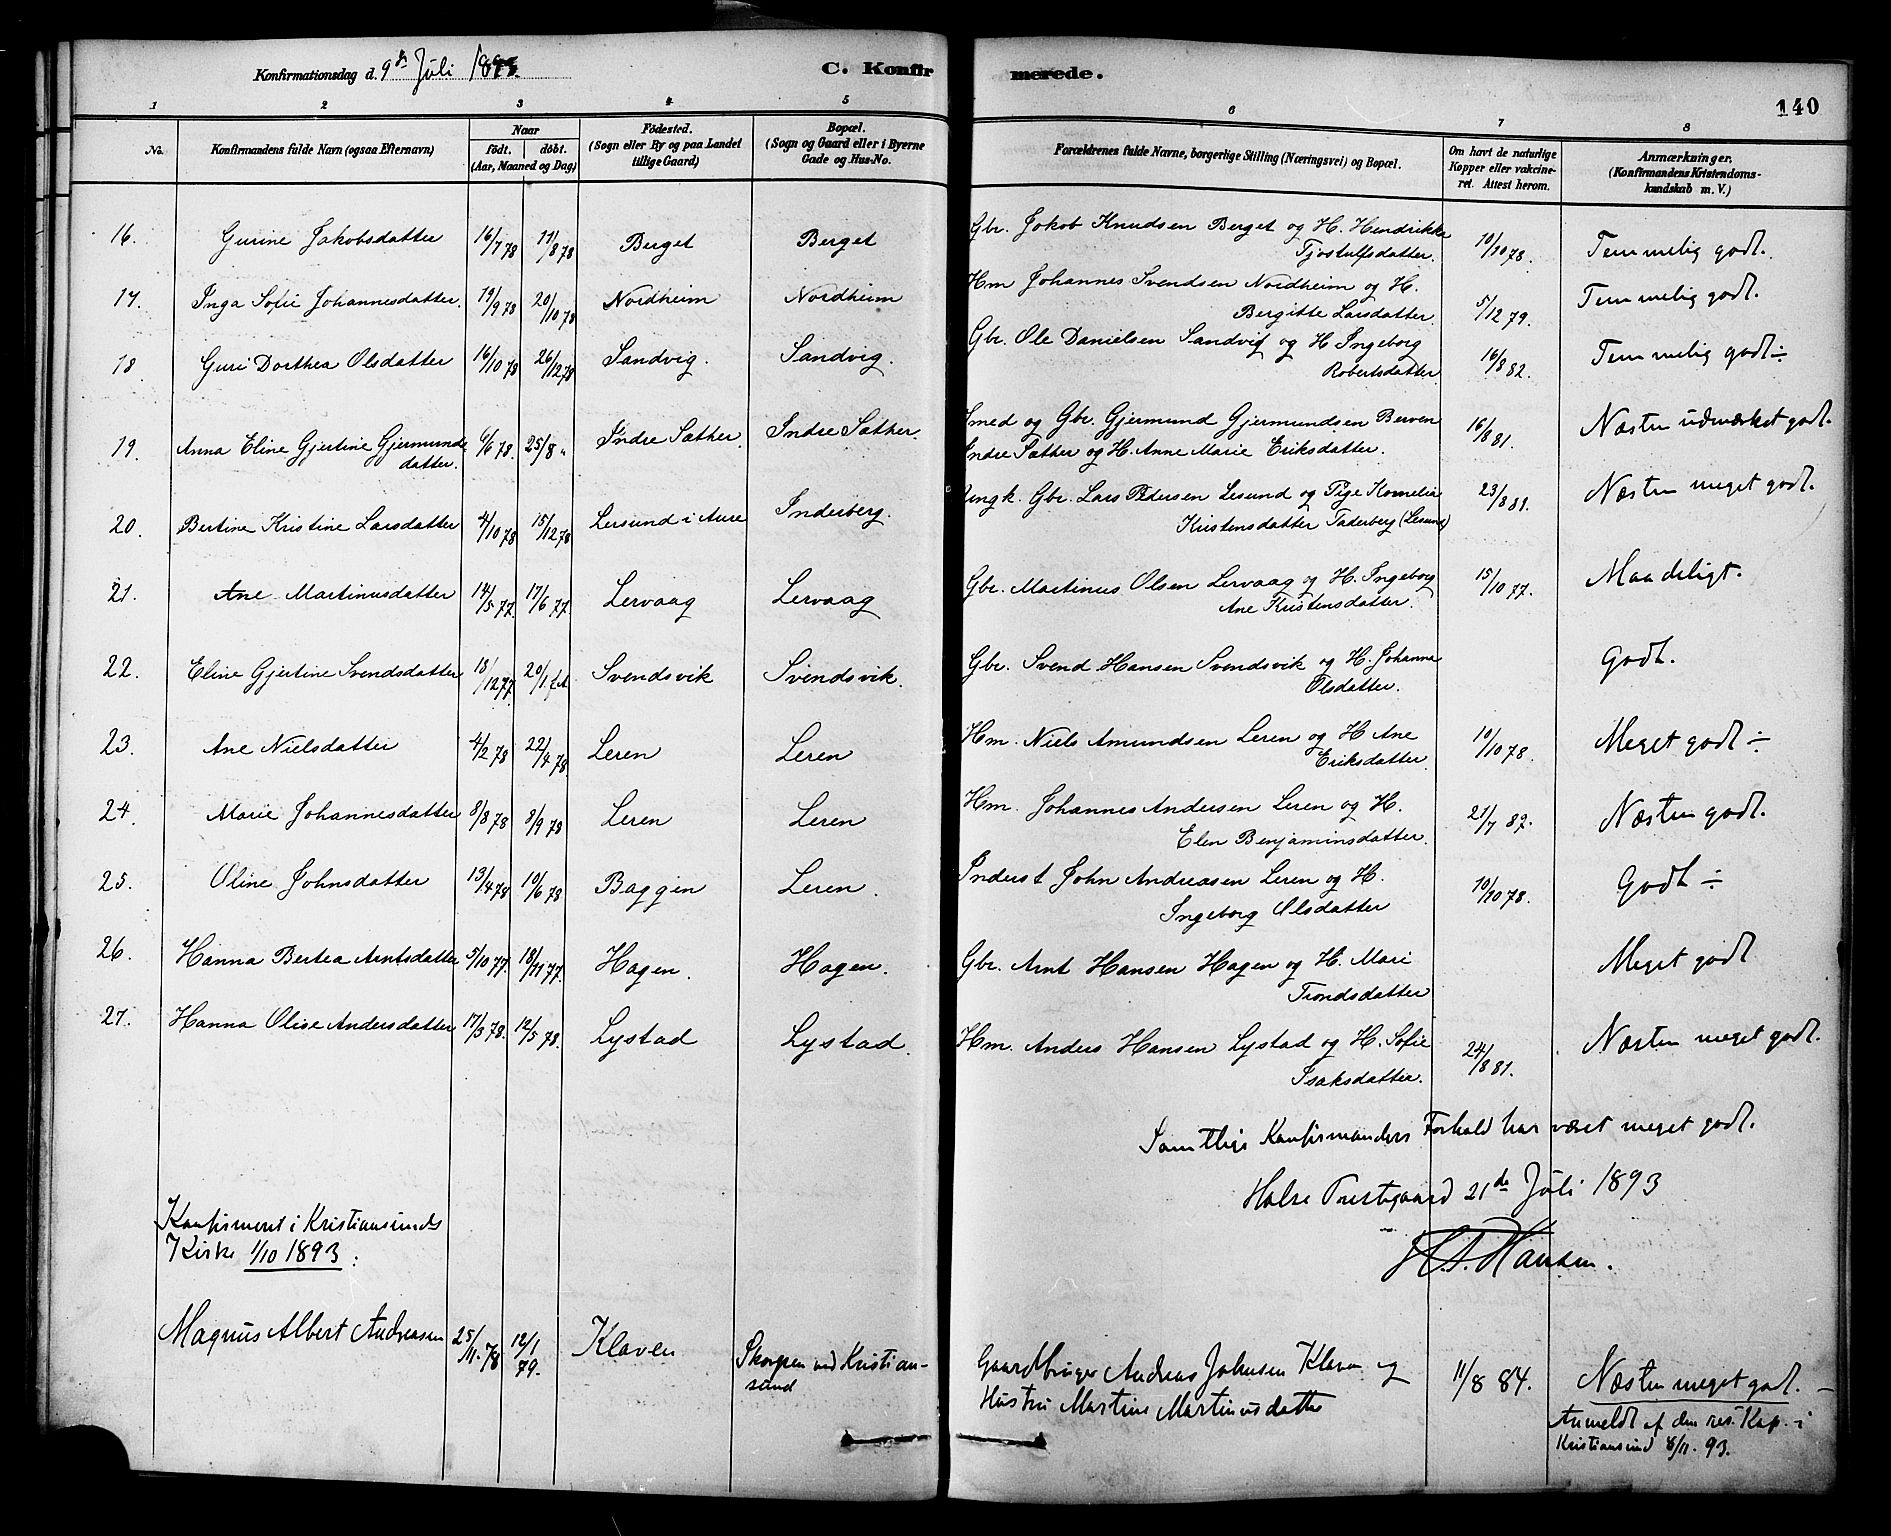 Konfirmationsdag d. 9de Juli 1893.
C. Konfirmerede.
140
1 2 3 4 5 6 7 8
No.
Konfirmandens fulde Navn (ogsaa Efternavn)
Naar
født. døbt.
(Aar, Maaned og Dag)
Fødested.
(Sogn eller By og paa Landet
tillige Gaard)
Bopæl.
(Sogn og Gaard eller i Byerne
Gade og Hus-No.
Forældrenes fulde Navne, borgerlige Stilling (Næringsvei) og Bopæl.
Om havt de naturlige
Kopper eller vakcine-
ret. Attest herom.
Anmærkninger.
(Konfirmandens Kristendoms-
kundskab m. V.)
16. Gurine Jakobsdatter 16/7 78 11/8 78 Berget Berget Gbr. Jakob Knudsen Berget og H. Hendrikke
Tjostulfsdatter. 10/10 78. Temmelig godt.
17. Inga Sofie Johannesdatter. 19/9 78 20/10 78 Nordheim Nordheim Hm Johannes Svendsen Nordheim og H.
Bergitte Larsdatter. 5/12 79. Temmelig godt.
18. Guri Dorthea Olsdatter 16/10 78 26/12 78 Sandvig. Sandvig. Gbr. Ole Danielsen Sandvig og H Ingeborg
Robertsdatter 16/8 82. Temmelig godt ÷
19. Anna Eline Gjertine Gjermunds-
datter. 6/6 78. 25/8 " Indre Sæther. Indre Sæther. Smed og Gbr. Gjermund Gjermundsen Berven
Indre Sæther og H. Anne Marie Eriksdatter. 16/8 81. Næsten udmærket godt.
20. Bertine Kristine Larsdatter 4/10 78 15/12 78 Lersund i Aure Inderberg. Ungk. Gbr. Lars Pedersen Lesund og Pige Kornelia
Kristensdatter Taderberg (Lesund) 23/8 81. Næsten meget godt.
21. Ane Martinusdatter 14/5 77. 17/6 77. Lervaag Lervaag Gbr. Martinus Olsen Lervaag og H. Ingeborg
Ane Kristensdatter. 15/10 77. Maadeligt.
22. Eline Gjertine Svendsdatter 18/12 77. 20/1 Svendsvik Svendsvik. Gbr. Svend Hansen Svendsvik og H. Johanna
Olsdatter. Godt.
23. Ane Nielsdatter 4/2 78 22/4 78 Leren Leren Hm. Niels Amundsen Leren og H Ane
Eriksdatter. 10/10 78. Meget godt ÷
24. Marie Johannesdatter 8/8 78 8/9 78 Leren Leren Hm. Johannes Andersen Leren og H.
Elen Benjaminsdatter. 21/7 82. Næsten godt.
25. Oline Johnsdatter 13/4 78 10/6 78 Baggen Leren. Inderst John Andreasen Leren og H.
Ingeborg Olsdatter 10/10 78. Godt ÷
26. Hanna Bertea Arntsdatter 5/10 77. 18/11 77. Hagen. Hagen. Gbr. Arnt Hansen Hagen og H. Mari
Trondsdatter Meget godt
27. Hanna Olise Andersdatter 17/3 78. 12/5 78. Lystad Lystad. Hm. Anders Hansen Lystad og H. Sofie
Isaksdatter. 24/8 81. Næsten meget godt.
Samtlige Konfirmanders Forhold har været meget godt.
Halse Prestegaard 21de Juli 1893
Hansen.
Konfirmeret i Kristiansunds
Kirke 1/10 1893:
Magnus Albert Andreasen 25/11. 78 12/1 79. Klaven Skorpen ved Kristian-
sund Gaardbruger Andreas Johnsen Klaven og
Hustru Martine Martinusdatter 11/8 84. Næsten meget godt. –
Anmeldt af den res. Kap. i
Kristiansund 8/11. 93.